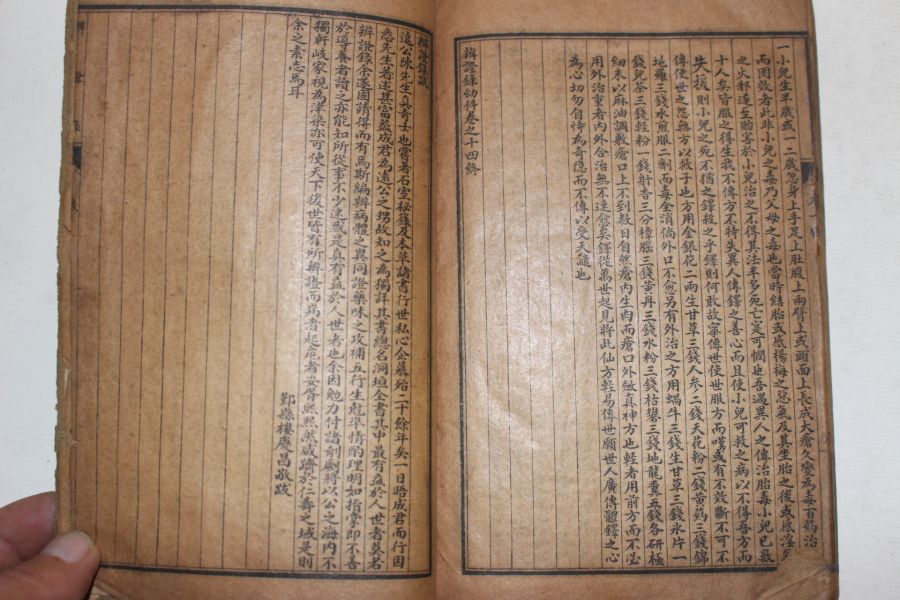 一小兒生半歲或一二歲忽身上手足上肚腹上兩臂上或頭面上長成大瘡久變為毒百藥治
而罔效者此非小兒之毒乃父母之毒也當時結胎或感楊梅之惡氣及其坐胎之後或感淫
之火邪遂至貽害於小兒治之不得其法半多死亡實可憫也吾遇異人之傳治胎毒小兒已數
十人矣皆服之得生我不傳方不特失異人傳鐸之善心而且使小兒可救之病以不得吾方而
失援則小兒之死不猶之鐸殺之乎鐸則何敢故寧傳世使世服方而嘆或有不效斷不可不
傳使世之怨無方以救子也方用金銀花二兩生甘草三錢人參二錢天花粉二錢黃藥三錢錦
地羅三錢水煎服二劑而毒全消倘外口不愈另有外治之方用蝸牛三錢生甘草三錢冰片一
錢兒茶三錢輕粉一錢射香三分樟腦三錢黃丹三錢水粉三錢枯礬三錢地龍糞五錢各研極
細末以麻油調敷瘡口上不到數日自然瘡內生肉而瘡口外斂真神方也輕者用前方而不必
用外治重者內外合治無不速愈矣鐸從萬世起見將此仙方輕易傳世願世人廣傳體鐸之心
為心切勿自恃為奇隱而不傳以受天譴也
辨證錄幼科卷之十四終
辨證錄跋
遠公陳先生真奇士也嘗著石室秘籙及本草諸書行世私心企慕殆二十餘年矣一日晤成君而行因
悉先生著述甚富蓋成君為遠公之甥故知之為獨詳其書總名洞垣全書其中最有益於人世者莫若
辨證錄余遂固請得而有焉斯編辨病體之異同證藥味之攻補五行生尅準情酌理明如指掌即不善
於導養者讀之亦能如所從事不少迷惑是真有益於人世者也余因勉力付諸剞劂將以公之海內不
獨軒歧家視為津梁亦可使天下後世皆有所辨證而病者起危者安胥熙熙然咸躋於仁壽之域是則
余之素志焉耳
鄞縣樓慶昌敬跋